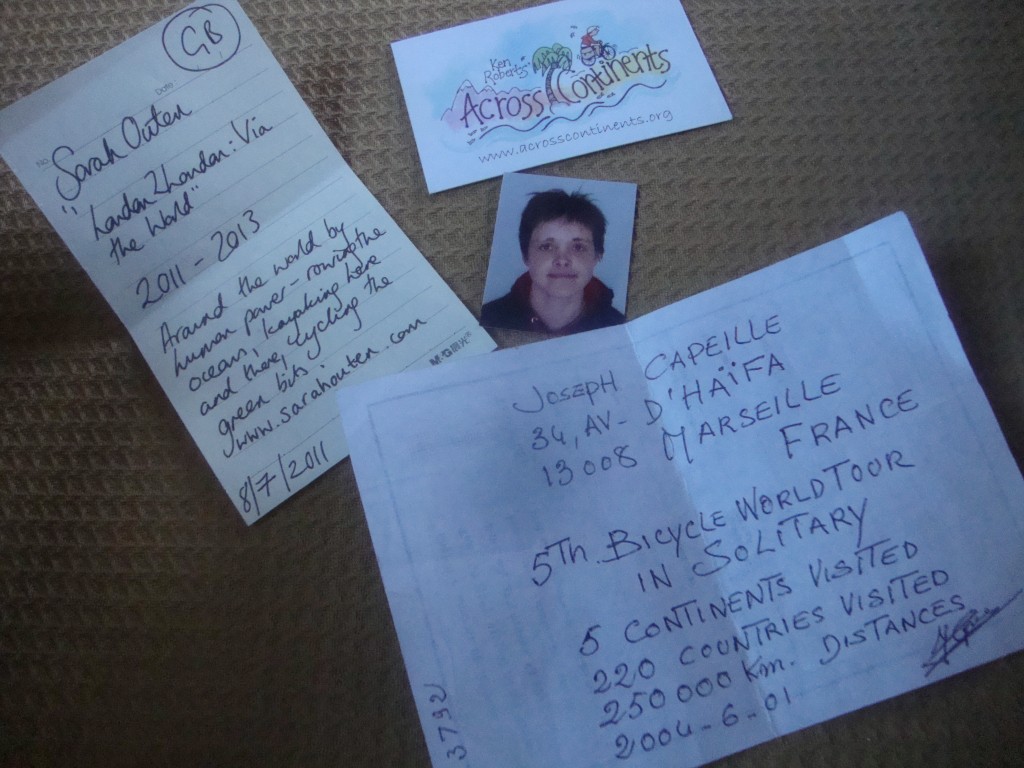 GB
Date
No.
Sarah Outen
"London2London: Via
the World"
2011 - 2013
Around the world by
human power - rowing the
oceans, kayaking here
and there, cycling the
green bits :
www.sarahouten.com
8/7/2011
Ken
Roberts'
Across Continents
www.acrosscontinents.org
JOSEPH CAPEILLE
34, AV- D'HAÏFA
13008 MARSEILLE
FRANCE
5TH. BICYCLE WORLD TOUR
IN SOLITARY
5 CONTINENTS VISITED
220 COUNTRIES VISITED
250 000 Km. DISTANCES
2004-6-01
3752